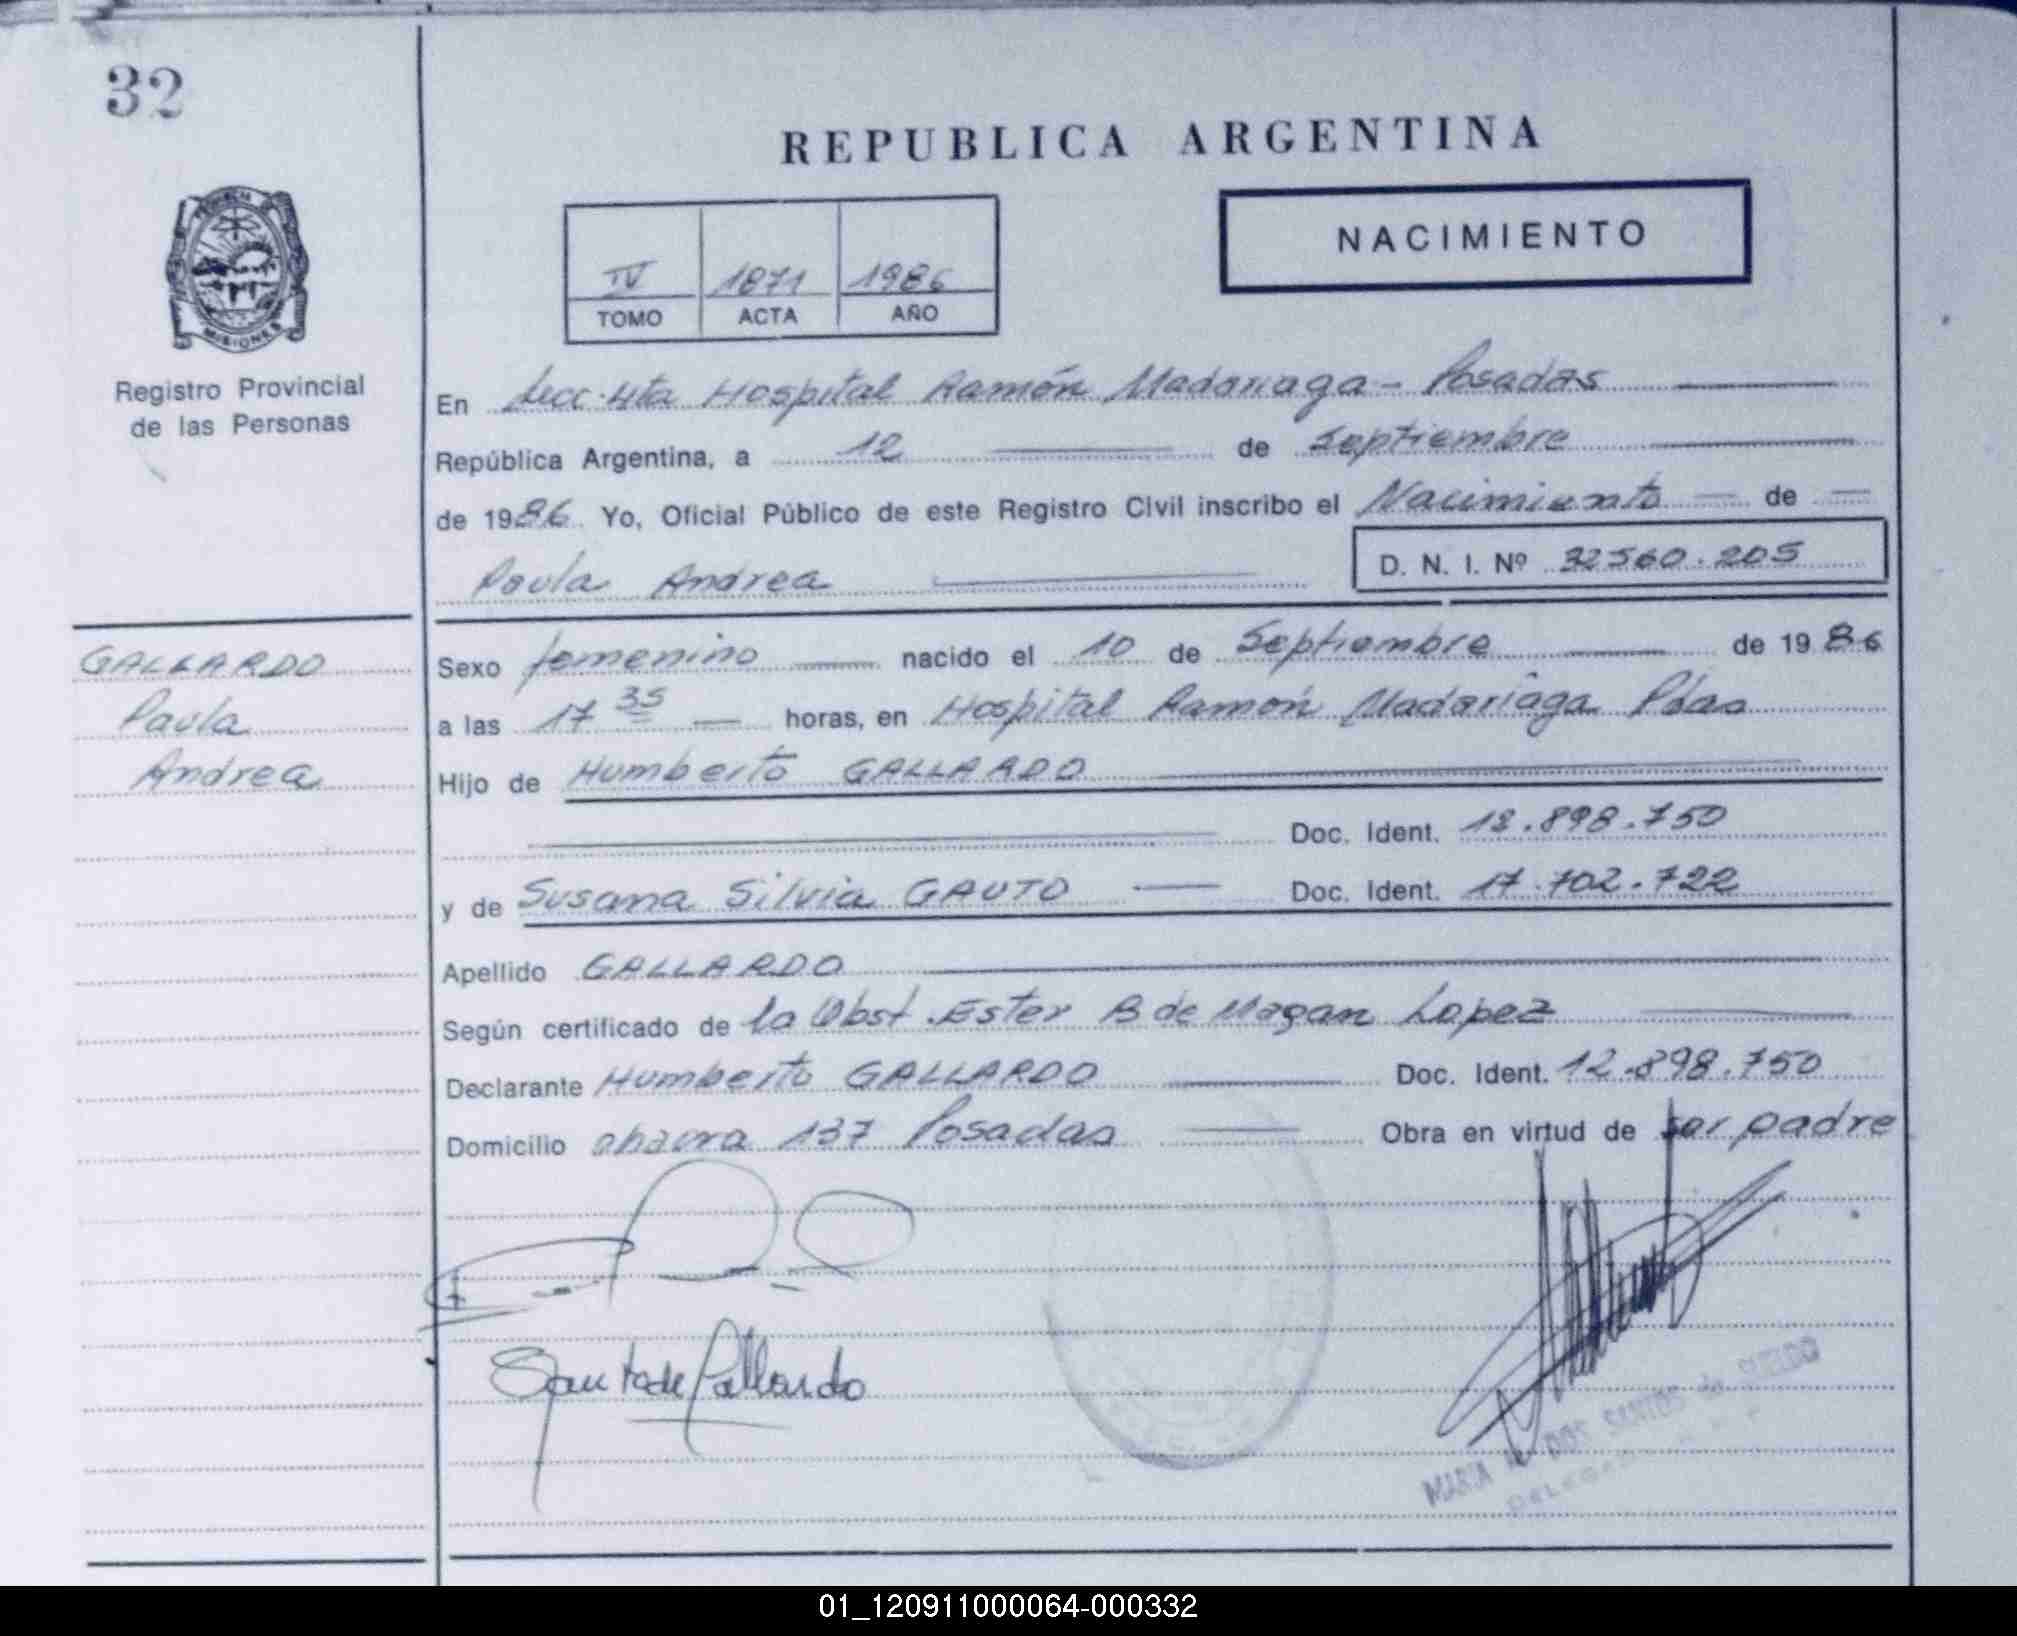 32
REPUBLICA ARGENTINA
NACIMIENTO
IV 1871 1986
TOMO ACTA AÑO
MISIONES
Registro Provincial
de las Personas
En Secc. 4ta Hospital Ramón Madariaga - Posadas
República Argentina, a 12 de Septiembre
de 1986 Yo, Oficial Público de este Registro Civil inscribo el Nacimiento de
Paula Andrea
D. N. I. Nº 32560.205
GALLARDO
Paula
Andrea
Sexo femenino nacido el 10 de Septiembre de 1986
a las 17 35 horas, en Hospital Ramón Madariaga Pdas
Hijo de Humberto GALLARDO
Doc. Ident. 12.898.750
y de Susana Silvia GAUTO Doc. Ident. 17.702.722
Apellido GALLARDO
Según certificado de la Obst. Ester B de Magan Lopez
Declarante Humberto GALLARDO Doc. Ident. 12.898.750
Domicilio 137 Posadas Obra en virtud de ser padre
SGauto de Gallardo
MARIA DOS SANTOS de
01_120911000064-000332